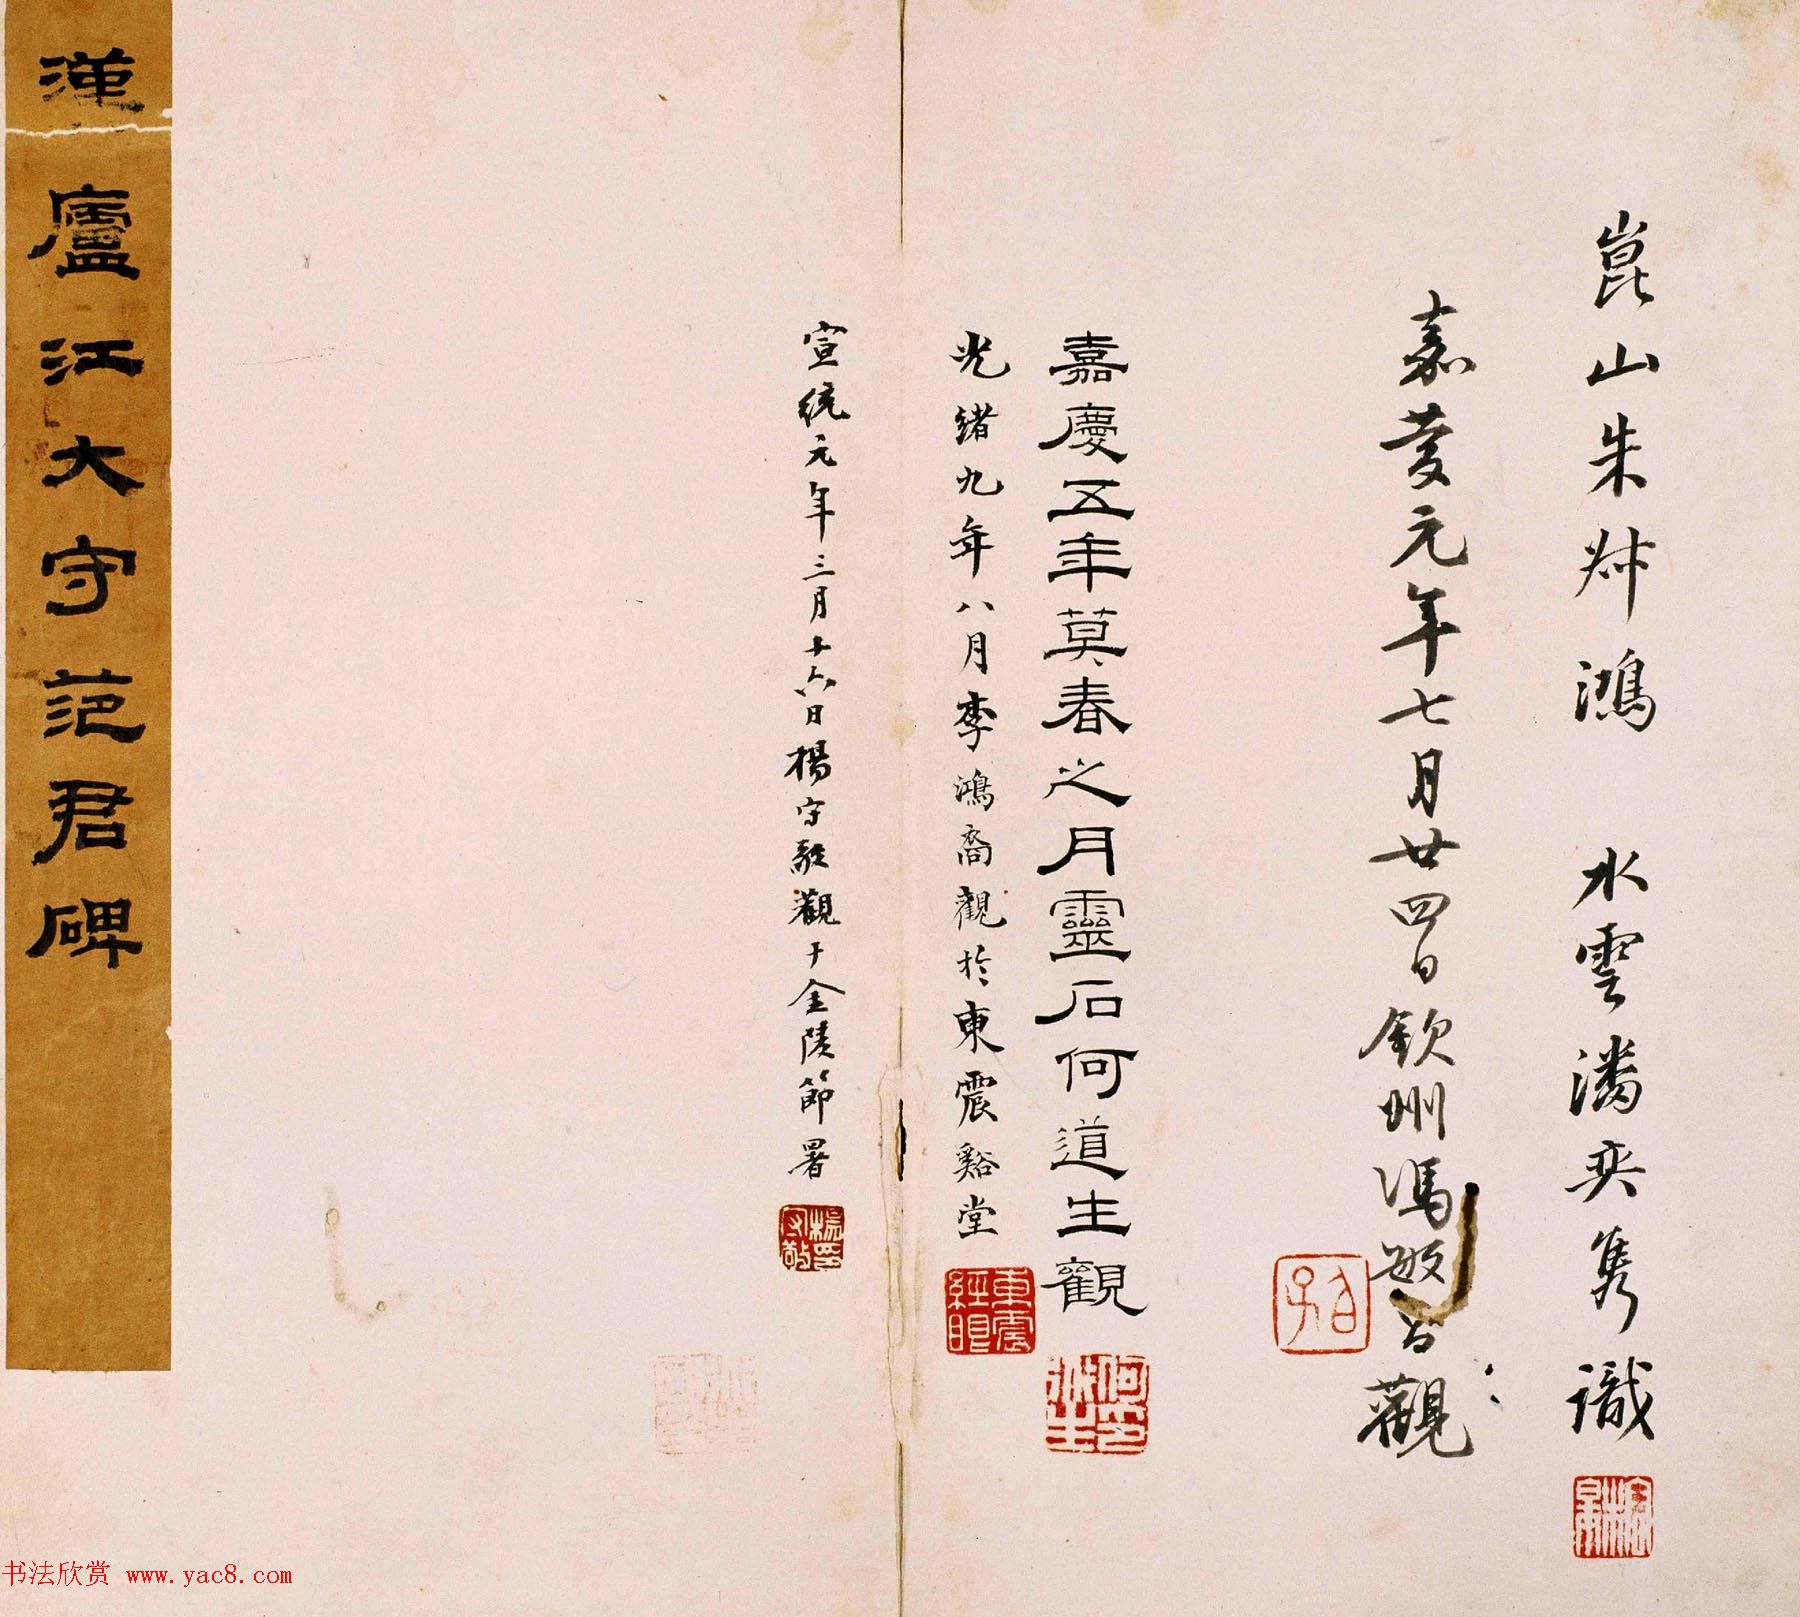 崑山朱𣁋鴻　水雲潘奕雋識
嘉慶元年七月廿四日欽州馮敏昌觀
嘉慶五年莫春之月靈石何道生觀
光緒九年八月李鴻裔觀於東震谿堂
宣統元年三月十六日楊守敬觀于金陵節署
漢廬江大守范君碑
书法欣赏 www.yac8.com